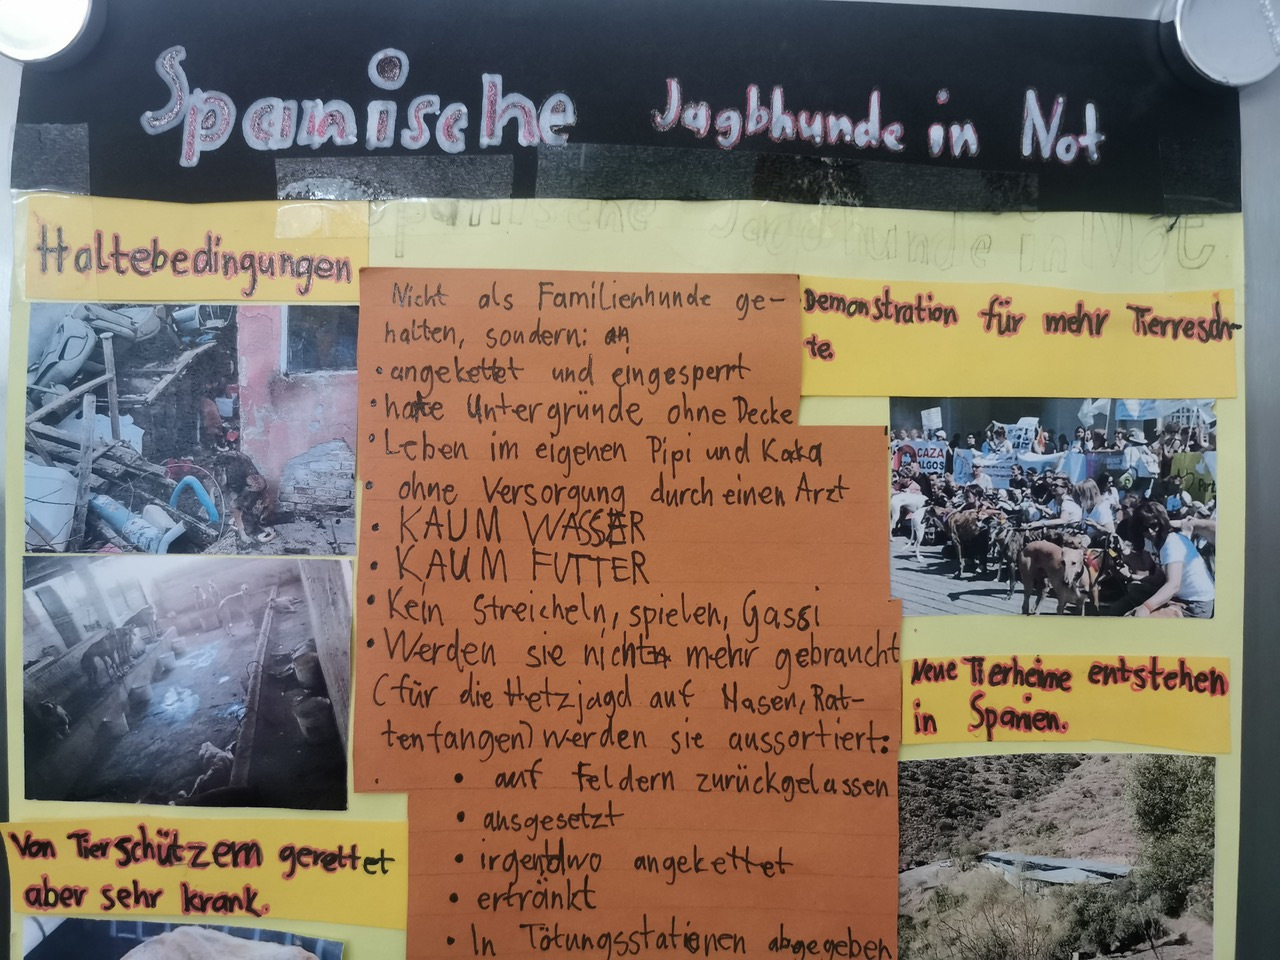 Spanische Jagbhunde in Not
Spanische Jagdhunde in Not
Haltebedingungen
Nicht als Familienhunde ge-
halten, sondern:
• angekettet und eingesperrt
• harte Untergründe ohne Decke
• Leben im eigenen Pipi und Kaka
• ohne Versorgung durch einen Arzt
• KAUM WASSER
• KAUM FUTTER
• Kein Streicheln, spielen, Gassi
• Werden sie nicht mehr gebraucht
(für die Hetzjagd auf Hasen, Rat-
tenfangen) werden sie aussortiert:
• auf Feldern zurückgelassen
• ausgesetzt
• irgendwo angekettet
• ertränkt
• In Tötungsstationen abgegeben
Demonstration für mehr Tierresch-
te.
CAZA
GALGOS
Neue Tierheime entstehen
in Spanien.
Von Tierschützern gerettet
aber sehr krank.